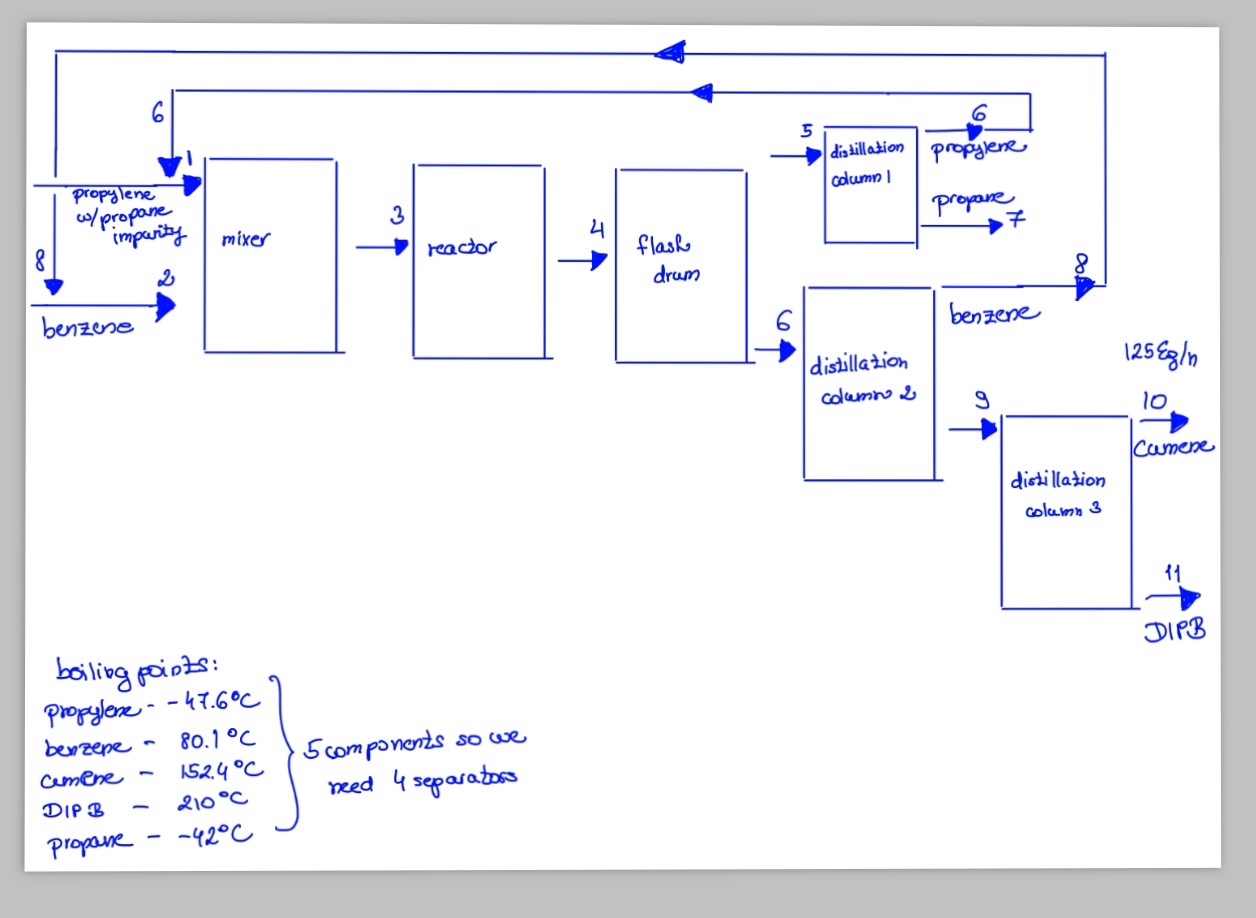 6
1
propylene
w/propane
impurity
8
2
benzene
mixer
3
reactor
4
flash
drum
5
distillation
column 1
6
propylene
propane
7
6
distillation
column 2
8
benzene
9
distillation
column 3
125 Eg/h
10
Cumene
11
DIPB
boiling points:
propylene - -47.6°C
benzene - 80.1°C
cumene - 152.4°C
DIPB - 210°C
propane - -42°C
5 components so we
need 4 separators